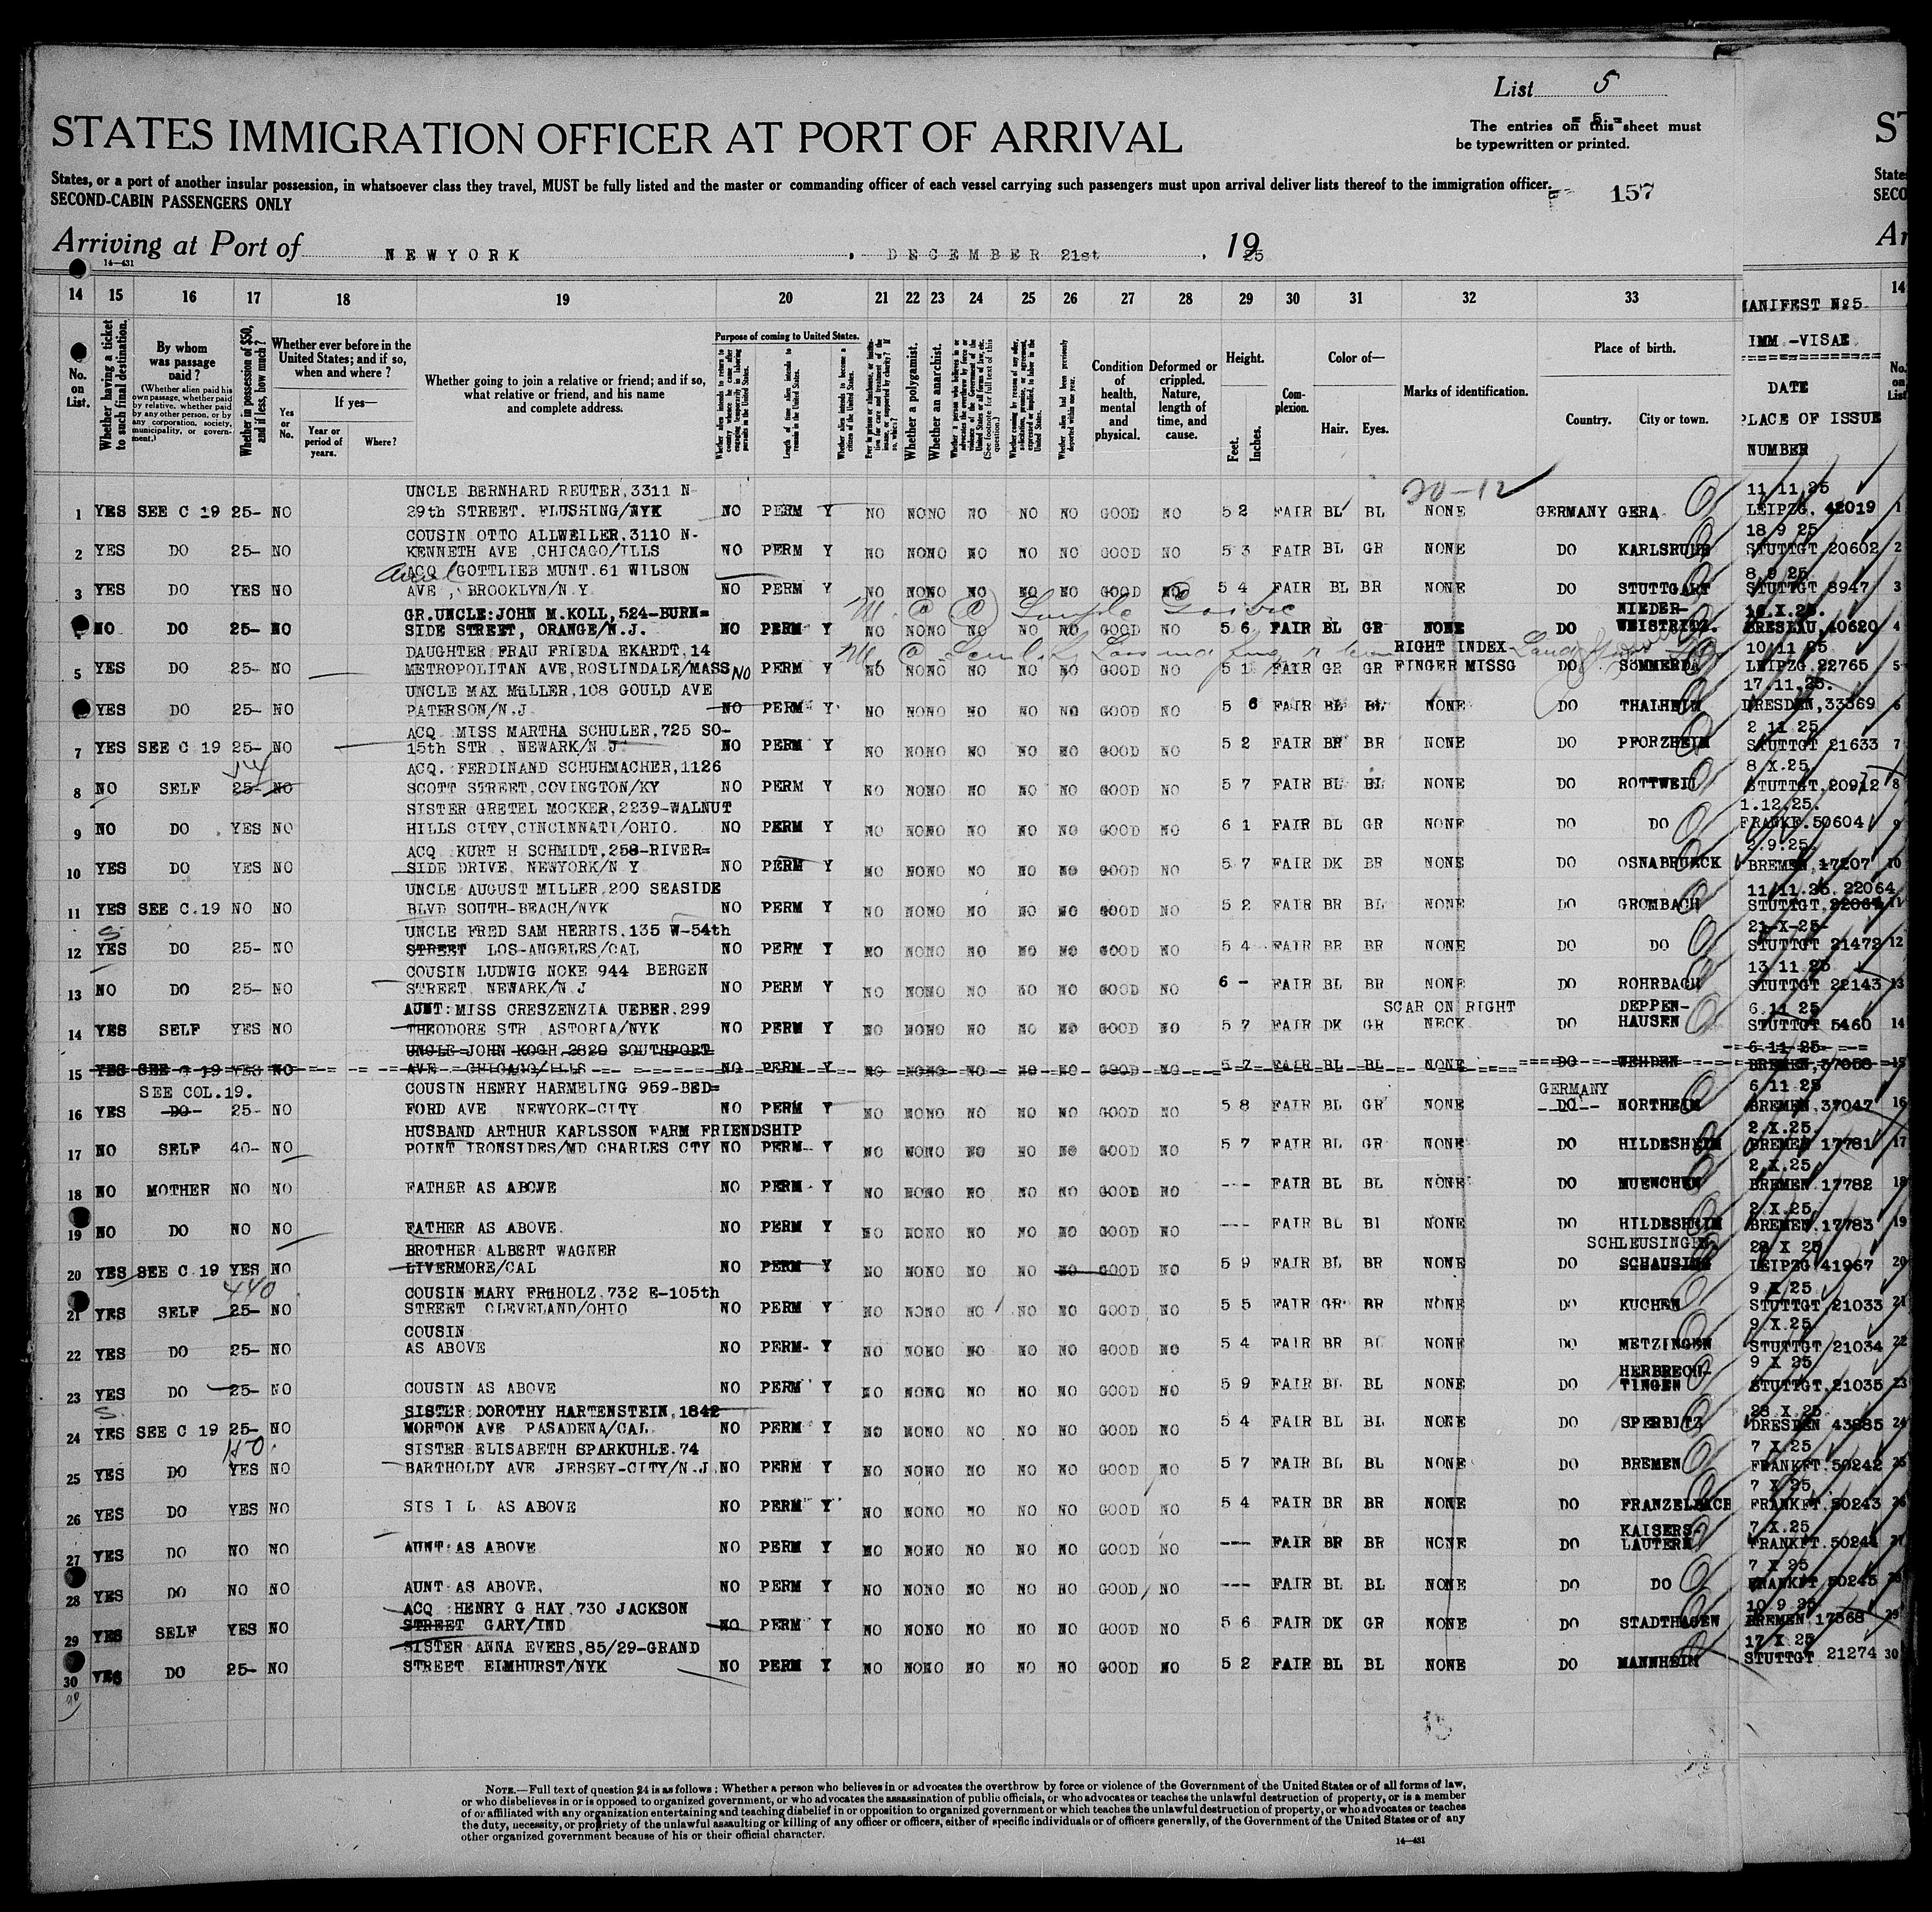 List 5
= 5 =
The entries on this sheet must
be typewritten or printed.
STATES IMMIGRATION OFFICER AT PORT OF ARRIVAL
States, or a port of another insular possession, in whatsoever class they travel, MUST be fully listed and the master or commanding officer of each vessel carrying such passengers must upon arrival deliver lists thereof to the immigration officer.
SECOND-CABIN PASSENGERS ONLY
157
Arriving at Port of NEWYORK, DECEMBER 21st, 1925
14—431
14 15 16 17 18 19 20 21 22 23 24 25 26 27 28 29 30 31 32 33
No. on List.
Whether having a ticket to such final destination.
By whom was passage paid?
(Whether alien paid his own passage, whether paid by relative, whether paid by any other person, or by any corporation, society, municipality, or government.)
Whether in possession of $50, and if less, how much?
Whether ever before in the United States; and if so, when and where?
Yes or No.
If yes—
Year or period of years.
Where?
Whether going to join a relative or friend; and if so, what relative or friend, and his name and complete address.
Purpose of coming to United States.
Length of time alien intends to remain in the United States.
Whether alien intends to become a citizen of the United States.
Whether a polygamist.
Whether an anarchist.
Condition of health, mental and physical.
Deformed or crippled. Nature, length of time, and cause.
Height.
Feet. Inches.
Complexion.
Color of—
Hair. Eyes.
Marks of identification.
Place of birth.
Country. City or town.
MANIFEST No 5.
IMM.-VISAE
DATE
PLACE OF ISSUE
NUMBER
20-12
UNCLE BERNHARD REUTER, 3311 N- 11 11 25
1 YES SEE C 19 25- NO 29th STREET. FLUSHING/NYK NO PERM Y NO NO NO NO NO NO GOOD NO 5 2 FAIR BL BL NONE GERMANY GERA LEIPZG. 42019 1
COUSIN OTTO ALLWEILER, 3110 N- 18 9 25
2 YES DO 25- NO KENNETH AVE, CHICAGO/ILLS NO PERM Y NO NO NO NO NO NO GOOD NO 5 3 FAIR BL GR NONE DO KARLSRUHE STUTTGT 20602 2
ACQ GOTTLIEB MUNT. 61 WILSON 8 9 25
3 YES DO YES NO AVE, BROOKLYN/N.Y. NO PERM Y NO NO NO NO NO NO GOOD NO 5 4 FAIR BL BR NONE DO STUTTGART STUTTGT 8947 3
GR.UNCLE: JOHN M.KOLL, 524-BURN= NIEDER- 16.X.25.
NO DO 25- NO SIDE STREET, ORANGE/N.J. NO PERM Y NO NO NO NO NO NO GOOD NO 5 6 FAIR BL GR NONE DO WEISTRITZ. BRESLAU, 40620 4
DAUGHTER FRAU FRIEDA EKARDT, 14 RIGHT INDEX- 10 11 25
5 YES DO 25- NO METROPOLITAN AVE, ROSLINDALE/MASS NO PERM Y NO NO NO NO NO NO GOOD NO 5 1 FAIR GR GR FINGER MISSG DO SÖMMERDA LEIPZG. 22765 5
UNCLE MAX MüLLER, 108 GOULD AVE 17.11.25.
YES DO 25- NO PATERSON/N.J. NO PERM Y NO NO NO NO NO NO GOOD NO 5 6 FAIR BL BL NONE DO THALHEIM DRESDEN, 33369 6
ACQ MISS MARTHA SCHULER, 725 SO- 2 11 25
7 YES SEE C 19 25- NO 15th STR. NEWARK/N.J. NO PERM Y NO NO NO NO NO NO GOOD NO 5 2 FAIR BR BR NONE DO PFORZHEIM STUTTGT 21633 7
ACQ. FERDINAND SCHUHMACHER, 1126 8 X.25.
8 NO SELF 25- NO SCOTT STREET, COVINGTON/KY NO PERM Y NO NO NO NO NO NO GOOD NO 5 7 FAIR BL BL NONE DO ROTTWEIL STUTTGT. 20912 8
SISTER GRETEL MOCKER, 2239-WALNUT 1.12.25.
9 NO DO YES NO HILLS CITY, CINCINNATI/OHIO. NO PERM Y NO NO NO NO NO NO GOOD NO 6 1 FAIR BL GR NONE DO DO FRANKF. 50604 9
ACQ KURT H SCHMIDT, 258-RIVER= 2.9.25.
10 YES DO YES NO SIDE DRIVE, NEWYORK/N Y NO PERM Y NO NO NO NO NO NO GOOD NO 5 7 FAIR DK BR NONE DO OSNABRUECK BREMEN, 17207 10
UNCLE AUGUST MILLER, 200 SEASIDE 11/11.25. 22064
11 YES SEE C.19 NO NO BLVD SOUTH-BEACH/NYK NO PERM Y NO NO NO NO NO NO GOOD NO 5 2 FAIR BR BL NONE DO GROMBACH STUTTGT. 11
UNCLE FRED SAM HERRIS, 135 W-54th 21-X-25-
12 YES DO 25- NO STREET LOS-ANGELES/CAL NO PERM Y NO NO NO NO NO NO GOOD NO 5 4 FAIR BR BR NONE DO DO STUTTGT 21472 12
COUSIN LUDWIG NOKE 944 BERGEN 13 11 25
13 NO DO 25- NO STREET, NEWARK/N.J NO PERM Y NO NO NO NO NO NO GOOD NO 6 - FAIR BL BR NONE DO ROHRBACH STUTTGT 22143 13
AUNT: MISS CRESZENZIA UEBER, 299 SCAR ON RIGHT DEPPEN- 6.11 25
14 YES SELF YES NO THEODORE STR ASTORIA/NYK NO PERM Y NO NO NO NO NO NO GOOD NO 5 7 FAIR DK GR NECK DO HAUSEN STUTTGT 5460 14
UNCLE JOHN KOGH, 2820 SOUTHPORT- 6 11 25
15 YES SEE C 19 YES NO AVE CHICAGO/ILLS NO PERM Y NO NO NO NO NO NO GOOD NO 5 7 FAIR BL BL NONE DO WEHDEN BREMEN, 37058 15
SEE COL.19. COUSIN HENRY HARMELING 959-BED= GERMANY 6 11 25
16 YES DO 25- NO FORD AVE NEWYORK-CITY NO PERM Y NO NO NO NO NO NO GOOD NO 5 8 FAIR BL GR NONE DO NORTHEIM BREMEN, 37047 16
HUSBAND ARTHUR KARLSSON FARM FRIENDSHIP 2.X.25.
17 NO SELF 40- NO POINT IRONSIDES/MD CHARLES CTY NO PERM Y NO NO NO NO NO NO GOOD NO 5 7 FAIR BL GR NONE DO HILDESHEIM BREMEN 17781 17
2 X.25
18 NO MOTHER NO NO FATHER AS ABOVE NO PERM Y NO NO NO NO NO NO GOOD NO --- FAIR BL BL NONE DO MUENCHEN BREMEN 17782 18
2 X.25,
19 NO DO NO NO FATHER AS ABOVE. NO PERM Y NO NO NO NO NO NO GOOD NO --- FAIR BL Bl NONE DO HILDESHEIM BREMEN. 17783 19
BROTHER ALBERT WAGNER SCHLEUSINGEN 28 X 25
20 YES SEE C 19 YES NO LIVERMORE/CAL NO PERM Y NO NO NO NO NO NO GOOD NO 5 9 FAIR BL BR NONE DO LEIPZG 41967 20
440
COUSIN MARY FRüHOLZ, 732 E-105th 9 X 25
21 YES SELF 25- NO STREET CLEVELAND/OHIO NO PERM Y NO NO NO NO NO NO GOOD NO 5 5 FAIR GR BR NONE DO KUCHEN STUTTGT. 21033 21
COUSIN 9 X.25
22 YES DO 25- NO AS ABOVE NO PERM Y NO NO NO NO NO NO GOOD NO 5 4 FAIR BR BL NONE DO METZINGEN STUTTGT 21034 22
HERBRECH- 9 X 25
23 YES DO 25- NO COUSIN AS ABOVE NO PERM Y NO NO NO NO NO NO GOOD NO 5 9 FAIR BL BL NONE DO TINGEN STUTTGT. 21035 23
SISTER DOROTHY HARTENSTEIN, 1842 28 X 25
24 YES SEE C 19 25- NO MORTON AVE PASADENA/CAL NO PERM Y NO NO NO NO NO NO GOOD NO 5 4 FAIR BL BL NONE DO SPERBITZ DRESDEN 43885 24
SISTER ELISABETH SPARKUHLE. 74 7 X 25
25 YES DO YES NO BARTHOLDY AVE JERSEY-CITY/N.J. NO PERM Y NO NO NO NO NO NO GOOD NO 5 7 FAIR BL BL NONE DO BREMEN FRANKFT. 50242 25
7 X 25
26 YES DO YES NO SIS I L AS ABOVE NO PERM Y NO NO NO NO NO NO GOOD NO 5 4 FAIR BR BR NONE DO FRANKFT. 50243 26
KAISERS- 7 X.25
27 YES DO NO NO AUNT AS ABOVE NO PERM Y NO NO NO NO NO NO GOOD NO --- FAIR BR BR NONE DO LAUTERN FRANKFT. 50244 27
7 X 25
28 YES DO NO NO AUNT AS ABOVE, NO PERM Y NO NO NO NO NO NO GOOD NO --- FAIR BL BL NONE DO DO FRANKFT 50245 28
ACQ HENRY G HAY, 730 JACKSON 10 9 25
29 YES SELF YES NO STREET GARY/IND NO PERM Y NO NO NO NO NO NO GOOD NO 5 6 FAIR DK GR NONE DO STADTHAGEN BREMEN 17368 29
SISTER ANNA EVERS, 85/29-GRAND 17 X 25
30 YES DO 25- NO STREET ELMHURST/NYK NO PERM Y NO NO NO NO NO NO GOOD NO 5 2 FAIR BL BL NONE DO MANNHEIM STUTTGT 21274 30
NOTE.—Full text of question 24 is as follows: Whether a person who believes in or advocates the overthrow by force or violence of the Government of the United States or of all forms of law,
or who disbelieves in or is opposed to organized government, or who advocates the assassination of public officials, or who advocates or teaches the unlawful destruction of property, or is a member
of or affiliated with any organization entertaining and teaching disbelief in or opposition to organized government or which teaches the unlawful destruction of property, or who advocates or teaches
the duty, necessity, or propriety of the unlawful assaulting or killing of any officer or officers, either of specific individuals or of officers generally, of the Government of the United States or of any
other organized government because of his or their official character.
14—431